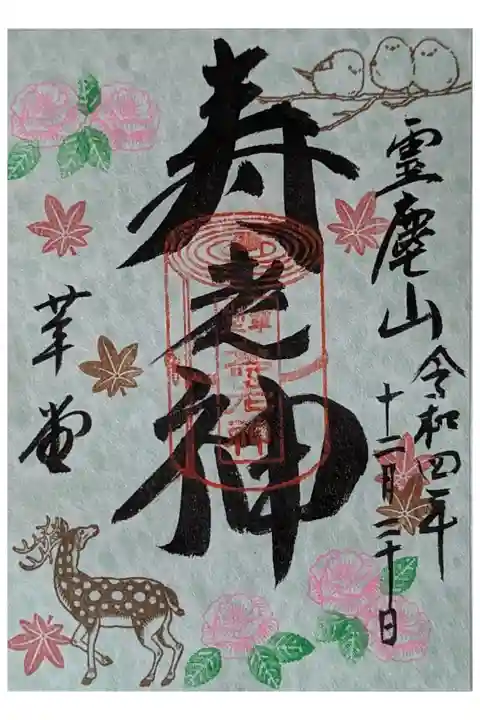 霊麀山
令和四年
十二月三十日
寿老神
革堂